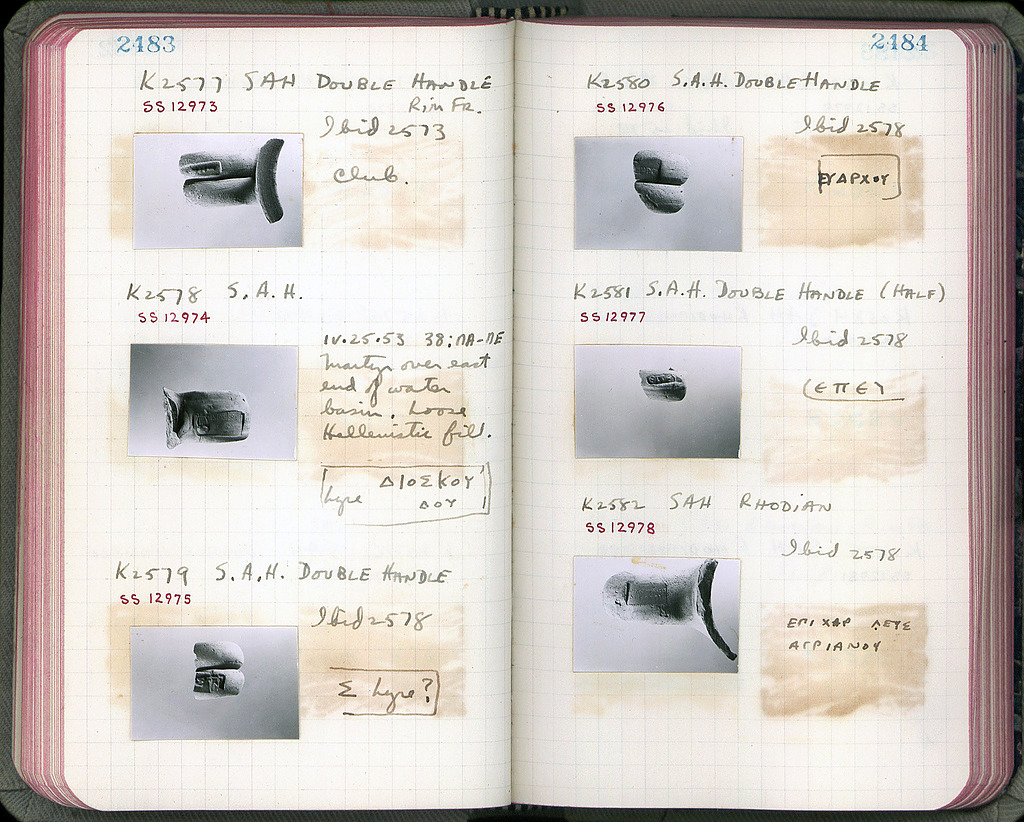 2483
K2577 SAH DOUBLE HANDLE
RIM FR.
SS 12973
Ibid 2573
club.
K2578 S.A.H.
SS 12974
IV.25.53 38:ΠΑ-ΠΕ
Martyr over east
end of water
basin. Loose
Hellenistic fill.
ΔΙΟΣΚΟΥ
lyre ΔΟΥ
K2579 S.A.H. DOUBLE HANDLE
SS 12975
Ibid 2578
Σ lyre?
2484
K2580 S.A.H. DOUBLE HANDLE
SS 12976
Ibid 2578
ΕΥΔΡΧΟΥ
K2581 S.A.H. DOUBLE HANDLE (HALF)
SS 12977
Ibid 2578
(ΕΠΕΥ
K2582 SAH RHODIAN
SS 12978
Ibid 2578
ΕΠΙ ΧΑΡ ΛΕΥΣ
ΑΓΡΙΑΝΟΥ